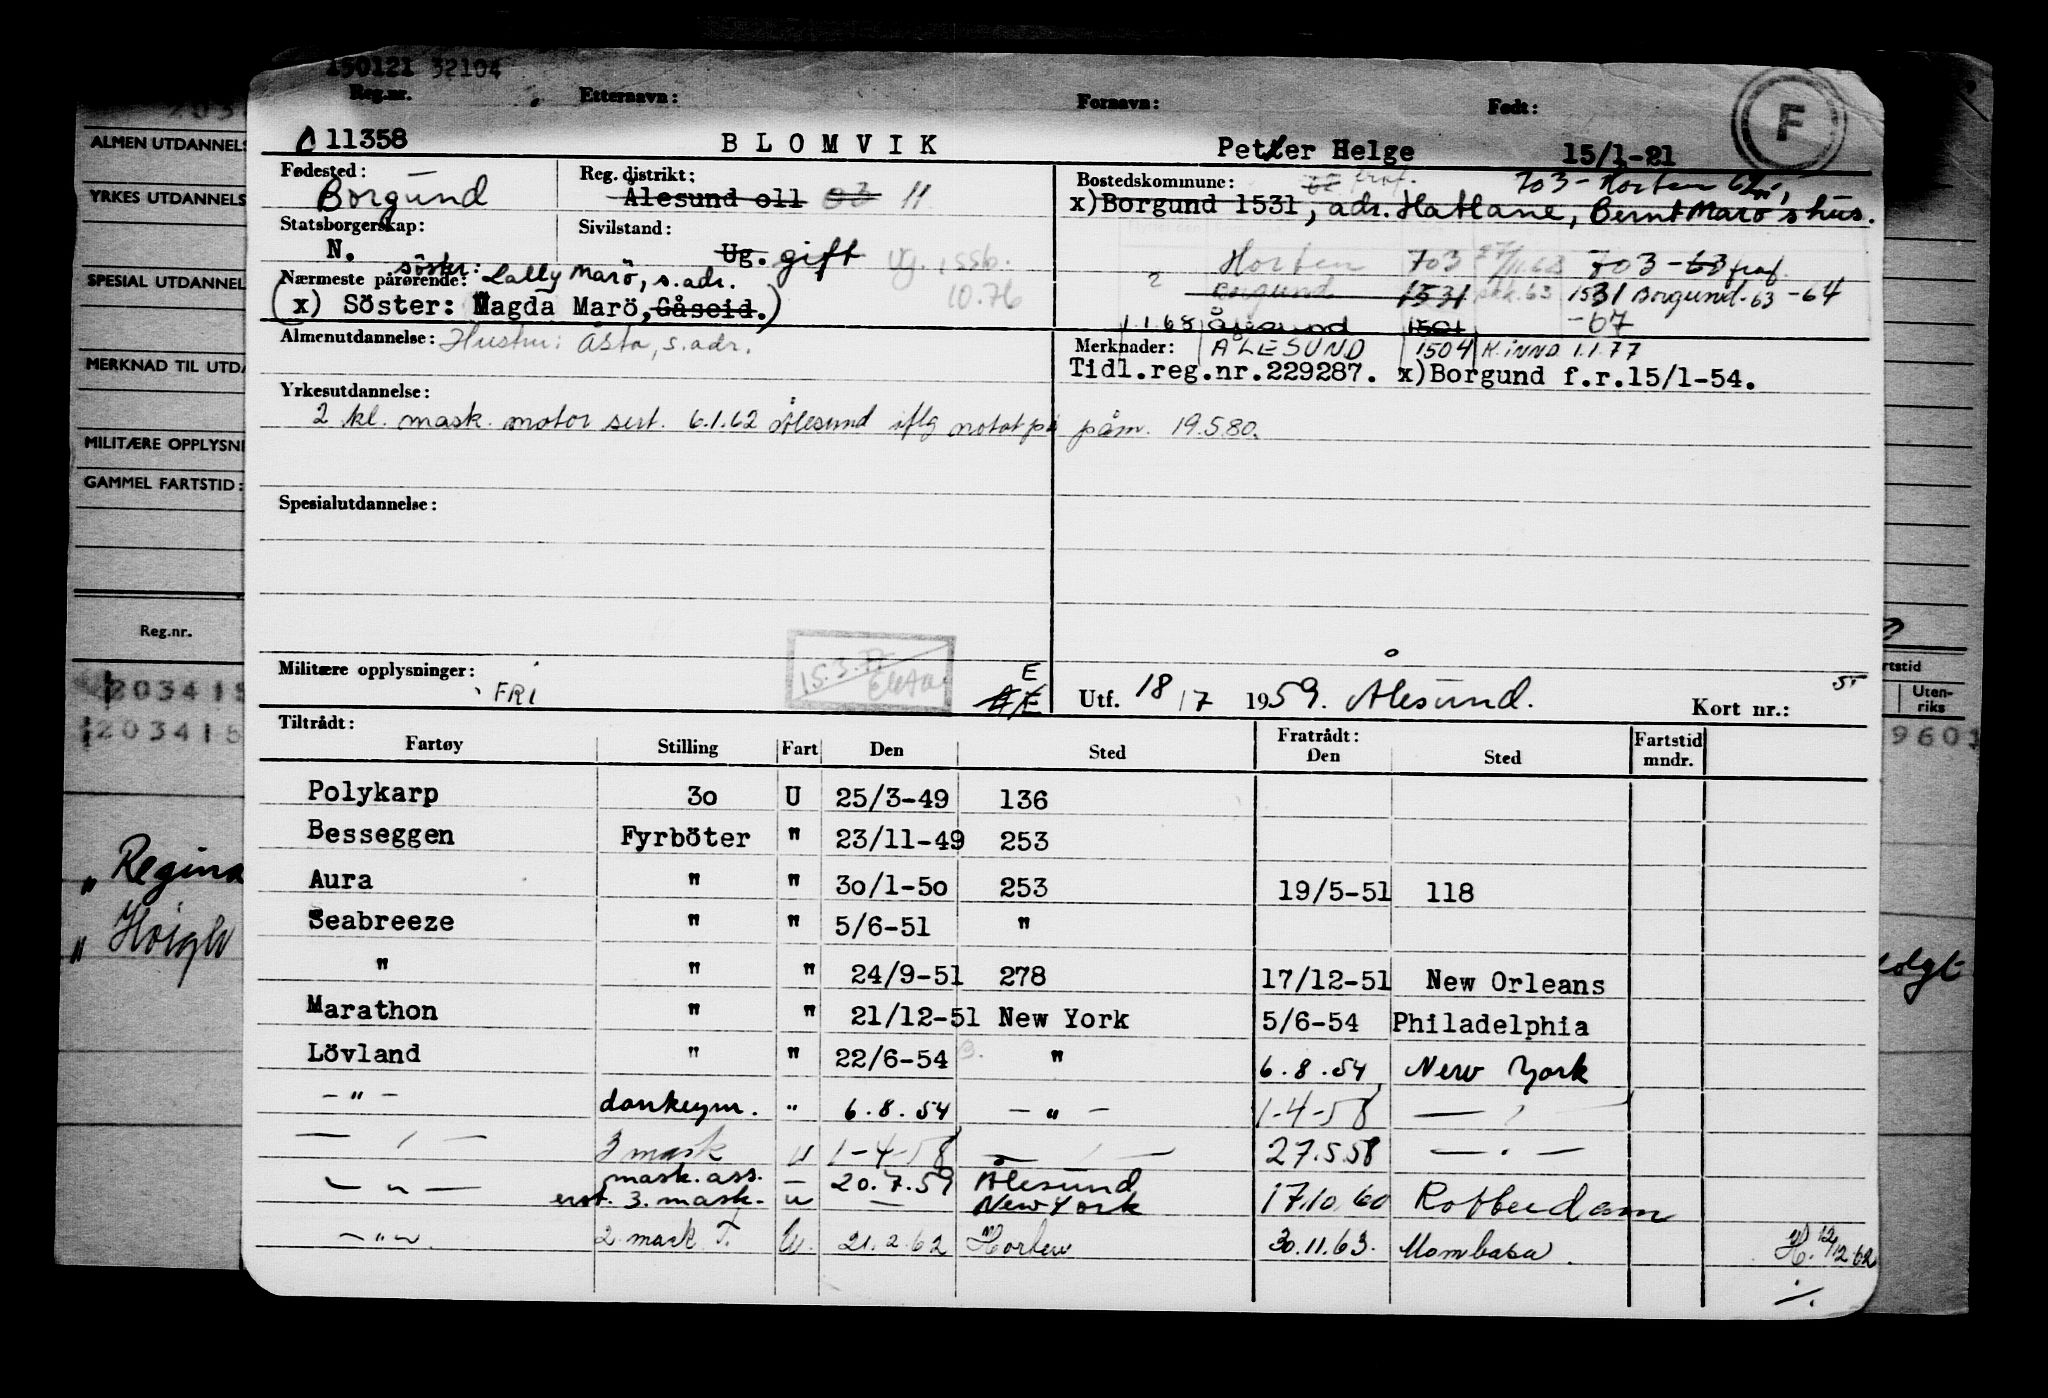 150121 32104
Reg.nr. Etternavn: Fornavn: Født:
11358 BLOMVIK Petter Helge 15/1-21 F
Fødested: Borgund Reg. distrikt: Ålesund o11 03 11 Bostedskommune: 703 - Horten 62
x)Borgund 1531, adr. Hatlane, Bernt Marö's hus.
Statsborgerskap: N. Sivilstand: Ug. gift ug. 10.76
Horten 703 703 - 63
Nærmeste pårørende: söster: Lally Marö, s. adr.
(x) Söster: Magda Marö, Gåseid.)
Borgund 1531 1531 Borgund - 63 - 64
1.1.68 Ålesund 1501 - 67
Almenutdannelse: Hustru: Åsta, s. adr.
Merknader: ÅLESUND 1504 K. INND 1.1.77
Tidl.reg.nr.229287. x)Borgund f.r.15/1-54.
Yrkesutdannelse:
2 kl. mask. motor sert. 6.1.62 Ålesund iflg notat på påm. 19.5.80.
Spesialutdannelse:
Militære opplysninger: FRI E
Utf. 18/7 1959. Ålesund. Kort nr.:
Tiltrådt: Fratrådt:
Fartøy Stilling Fart Den Sted Den Sted Fartstid mndr.
Polykarp 3o U 25/3-49 136
Besseggen Fyrböter " 23/11-49 253
Aura " " 3o/1-5o 253 19/5-51 118
Seabreeze " " 5/6-51 "
" " " 24/9-51 278 17/12-51 New Orleans
Marathon " " 21/12-51 New York 5/6-54 Philadelphia
Lövland " " 22/6-54 " 6.8.54 New York
- " - donkeym. " 6.8.54 - " - 1-4-58 - " -
- " - 3 mask u 1-4-58 - " - 27.5.58 - " -
- " - mask. ass. - 20.7.59 Ålesund
erst. 3. mask. u - New York 17.10.60 Rotterdam
- " - 2 mask T. U. 21.2.62 Horten 30.11.63. Mombasa. H. 12/12 62
ALMEN UTDANNELS
YRKES UTDANNELS
SPESIAL UTDANNEL
MERKNAD TIL UTDA
MILITÆRE OPPLYSNI
GAMMEL FARTSTID:
Reg.nr.
203415
203415
" Regina
"
rtstid
Uten-
riks
9601